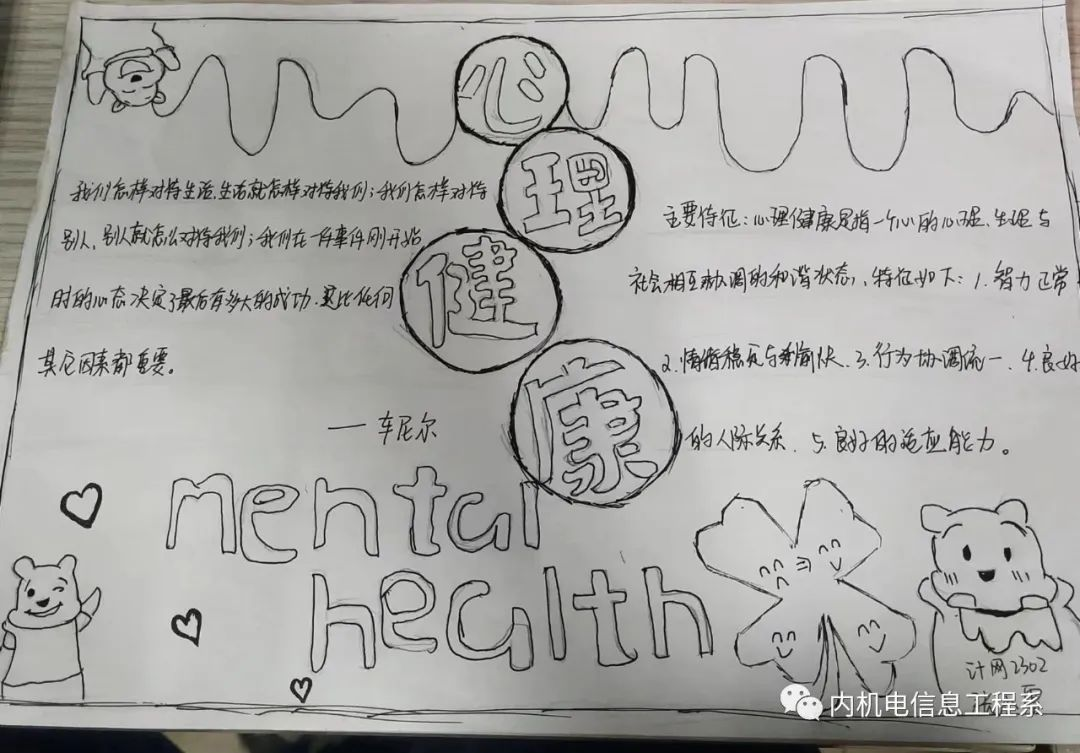 心
理
健
康
我们怎样对待生活,生活就怎样对待我们;我们怎样对待
别人,别人就怎么对待我们;我们在一件事件刚开始
时的心态决定了最后有多大的成功,这比任何
其他因素都重要。
——车尼尔
主要特征:心理健康是指一个心的心理、生理与
社会相互协调的和谐状态,特征如下:1.智力正常
2.情绪稳定与愉快、3.行为协调统一、4.良好
的人际关系、5.良好的适应能力。
mental
health
计网2302
内机电信息工程系